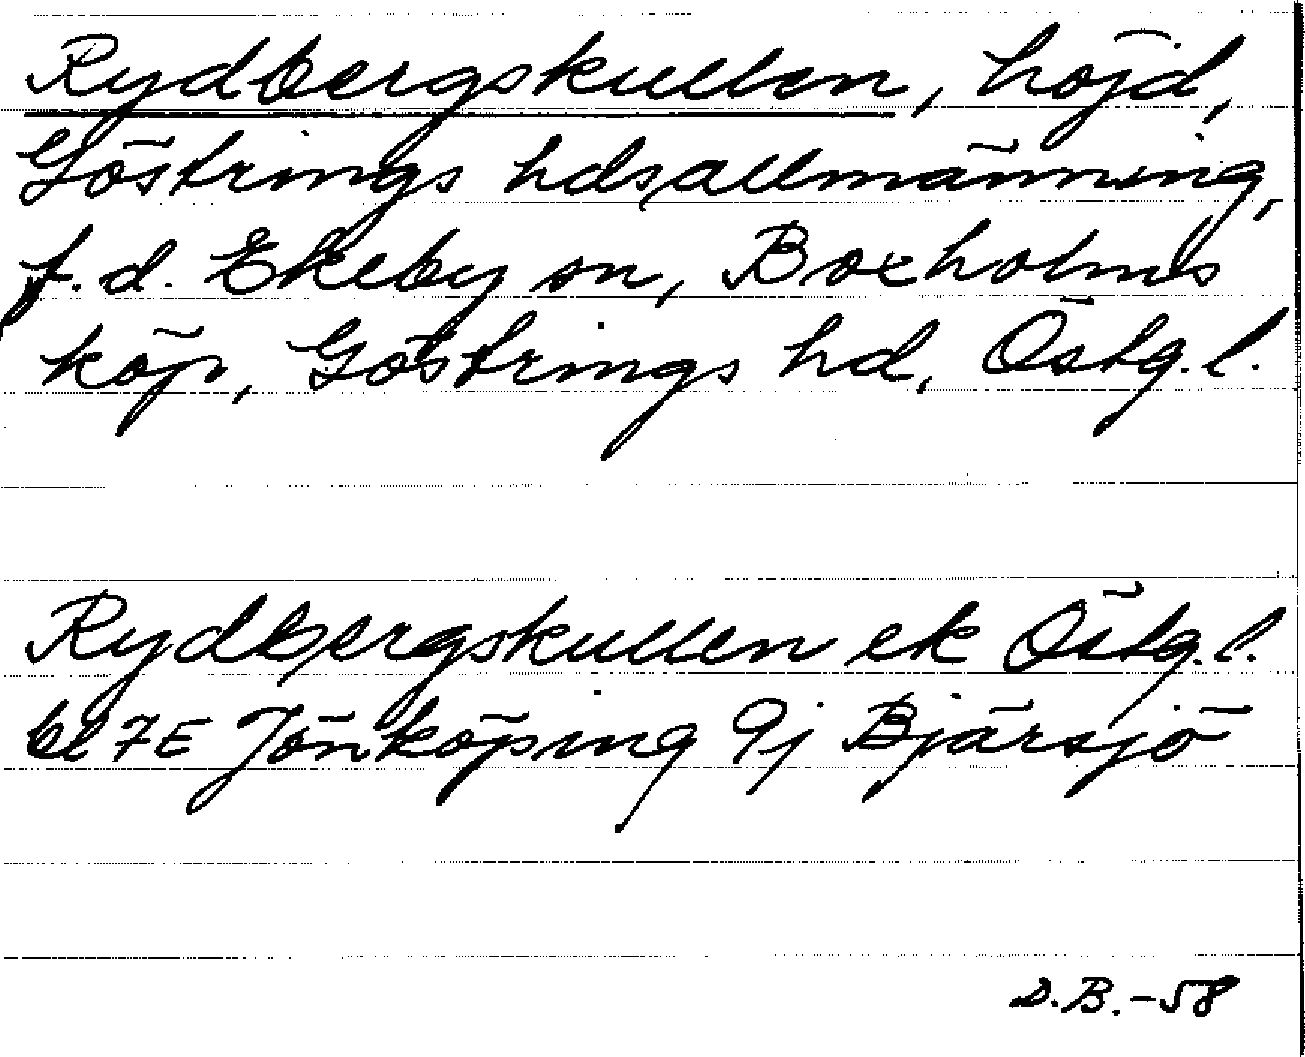 Rydbergskullen, höjd,
Göstrings hdsallmänning,
f.d. Ekeby sn, Boxholms
köp, Göstrings hd, Östg.l.
Rydbergskullen ek Östg.l.
bl 7E Jönköping 9j Bjärsjö
D.B.-58